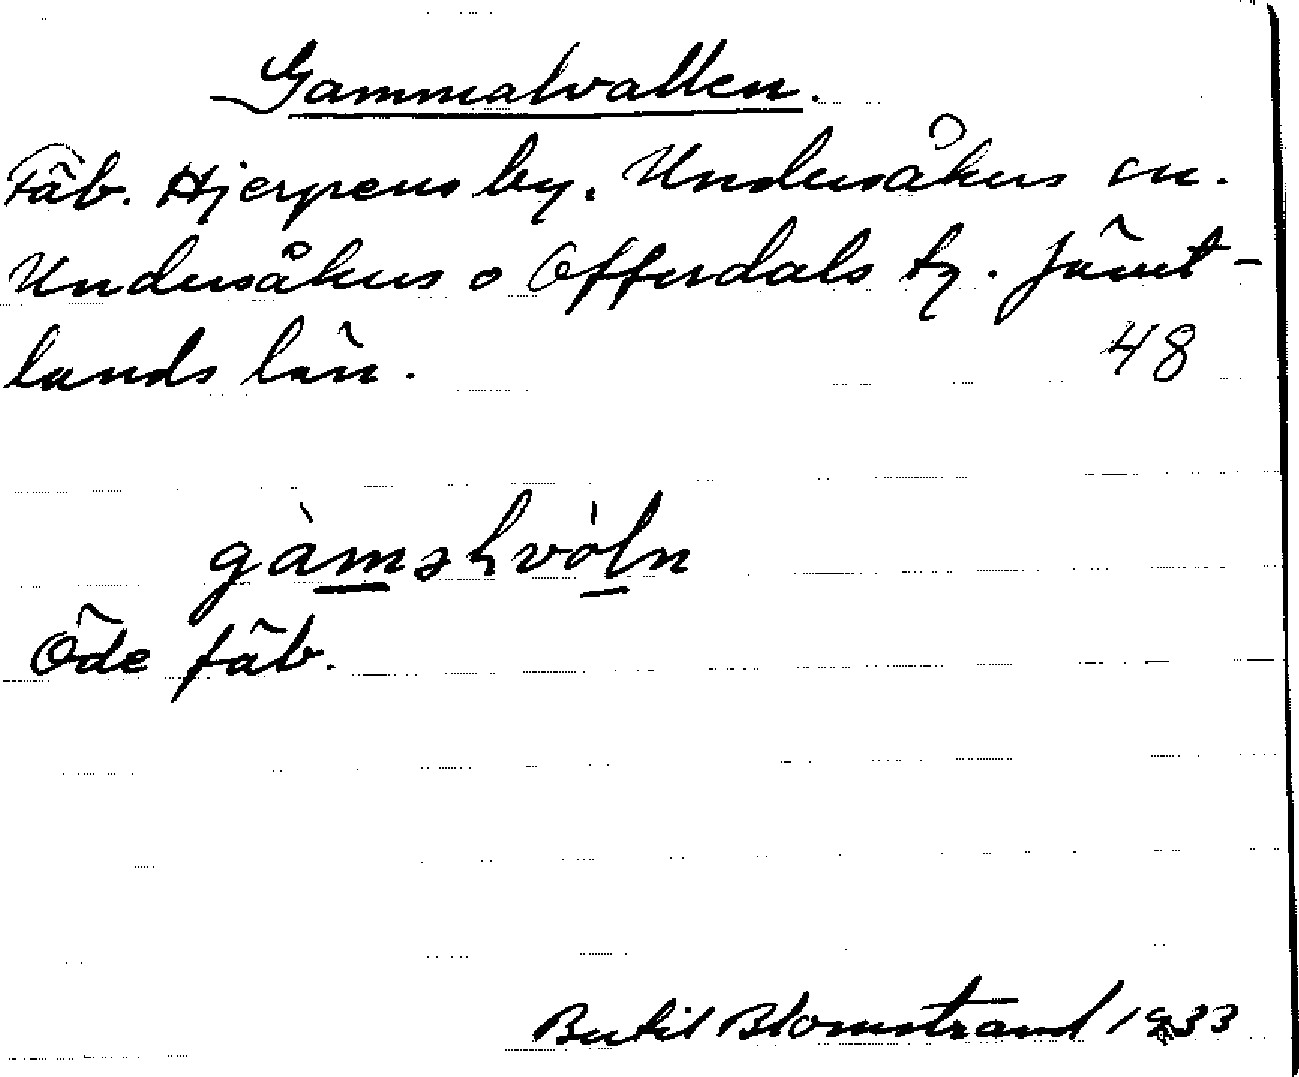 Gammalvallen.
Fäb. Hjerpens by. Undersåkers sn.
Undersåkers o Offerdals tg. Jämt-
lands län.
48
gàməlvòln
Öde fäb.
Bertil Blomstrand 1933